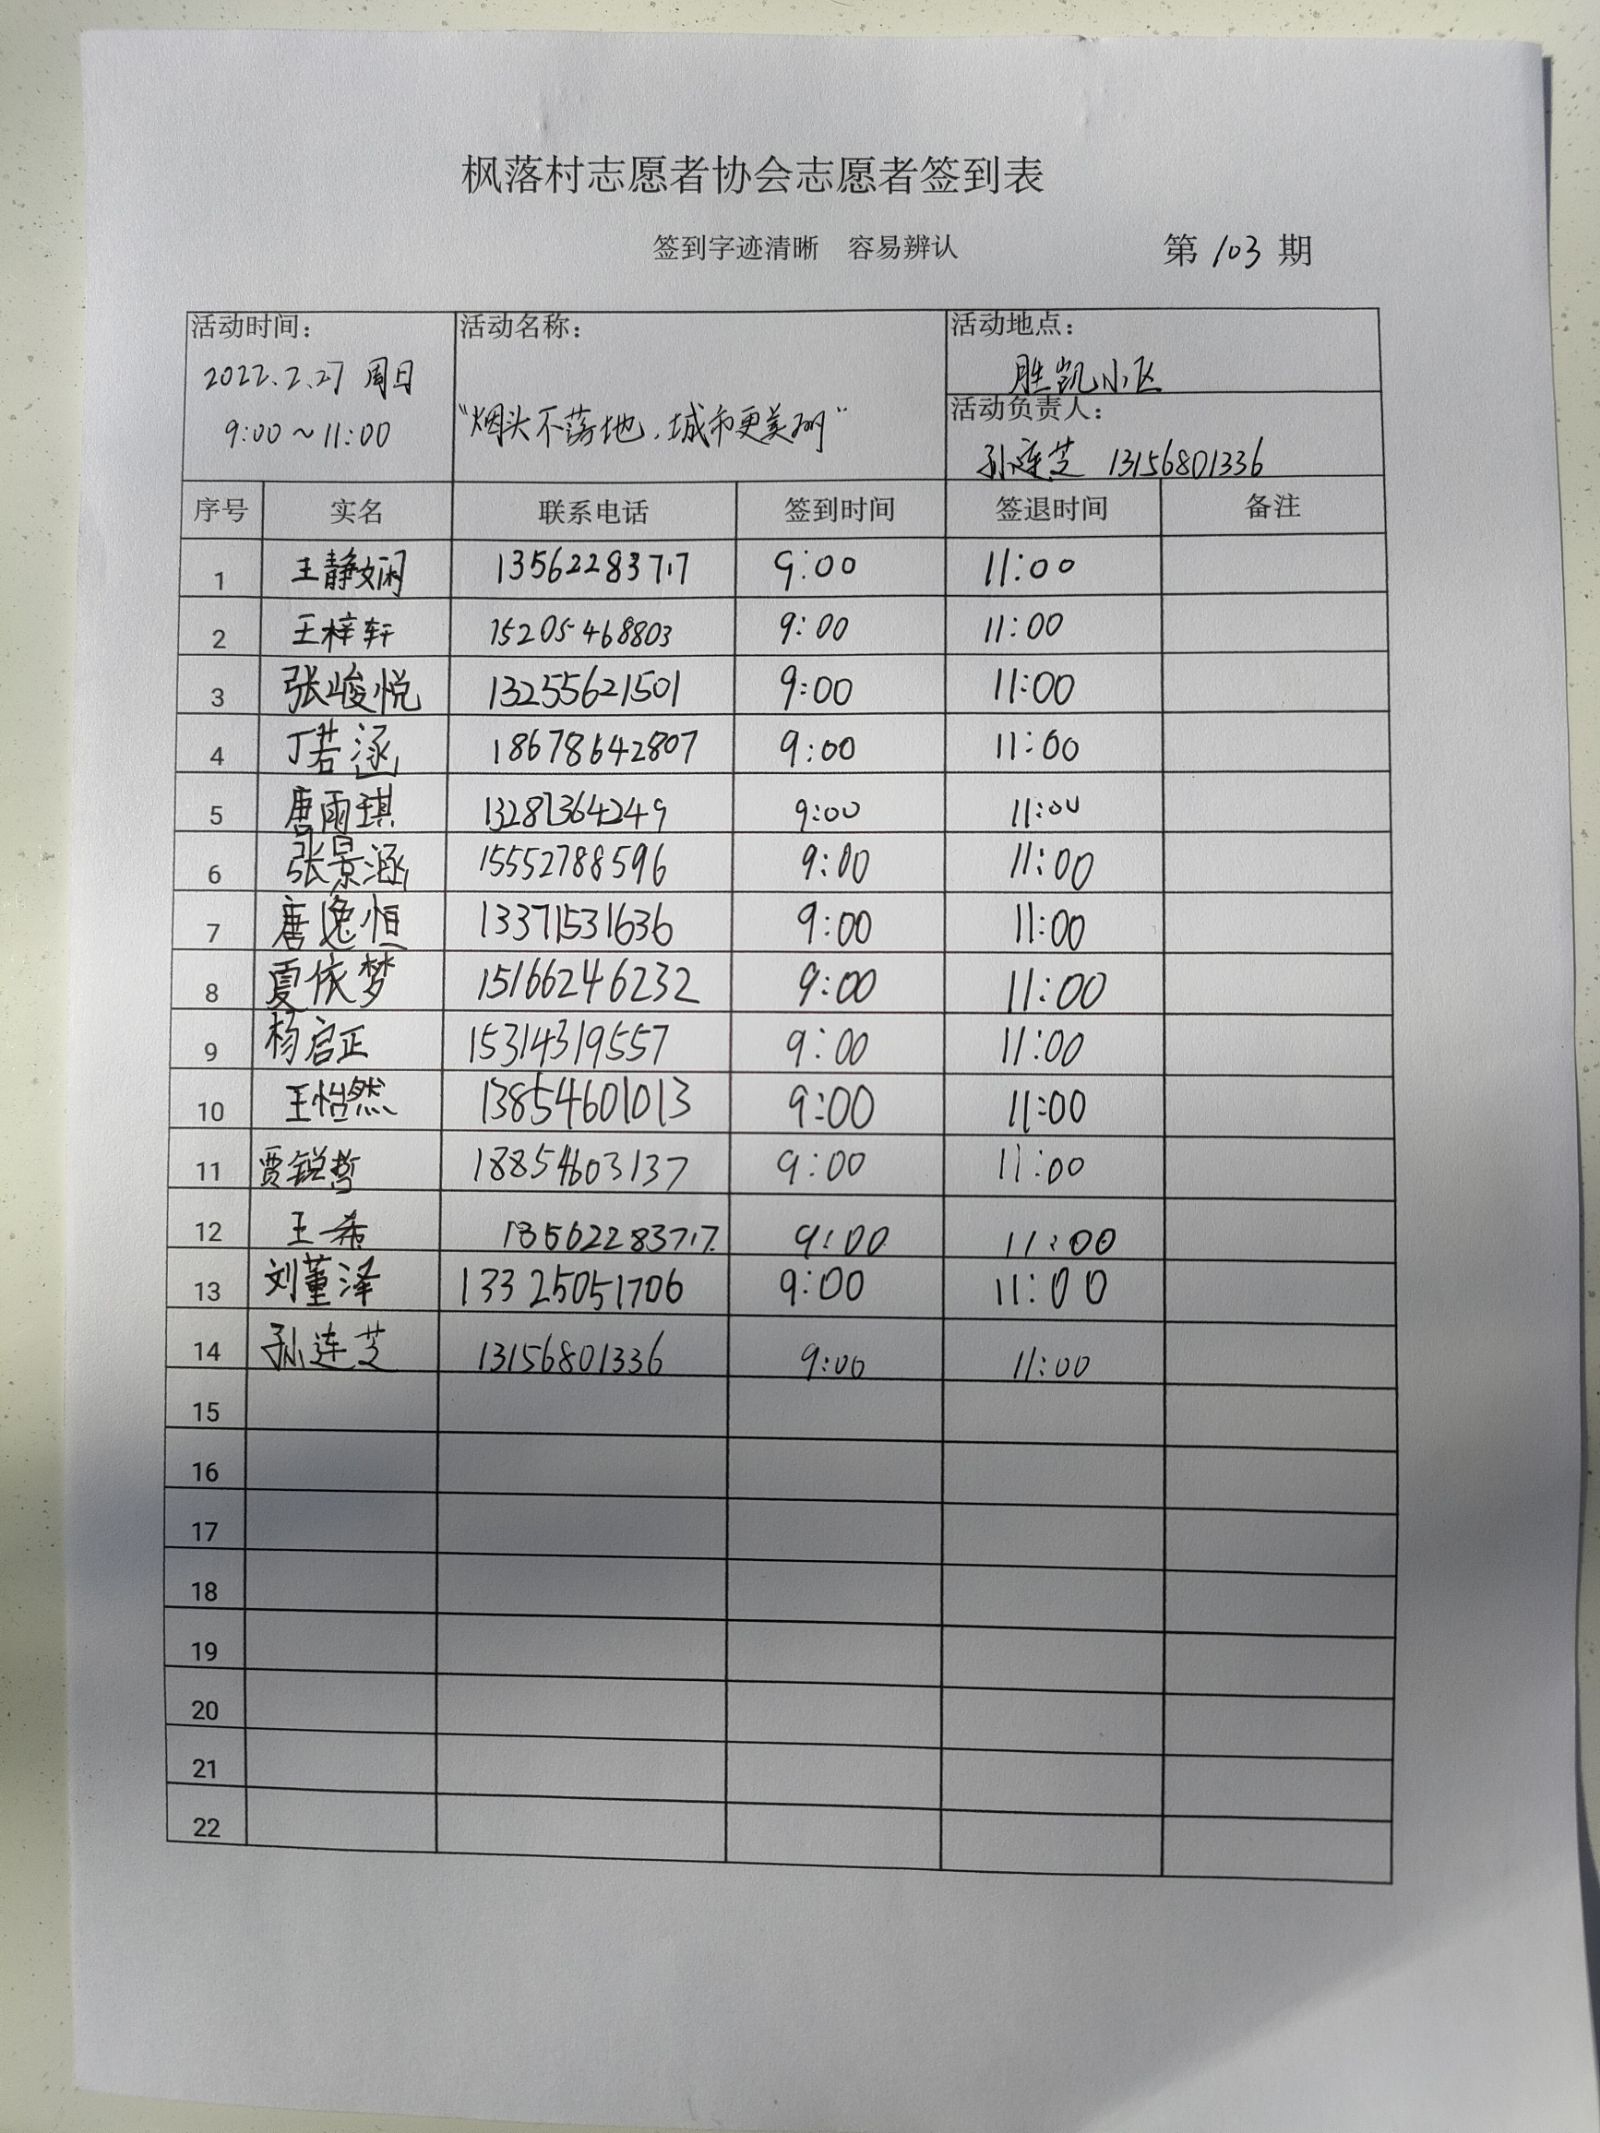 枫落村志愿者协会志愿者签到表
签到字迹清晰 容易辨认 第 103 期
活动时间： 活动名称： 活动地点：
2022.2.27 周日 胜凯小区
9:00～11:00 “烟头不落地，城市更美丽” 活动负责人：
孙连芝 13156801336
序号 实名 联系电话 签到时间 签退时间 备注
1 王静娴 13562283717 9:00 11:00
2 王梓轩 15205468803 9:00 11:00
3 张峻悦 13255621501 9:00 11:00
4 丁若涵 18678642807 9:00 11:00
5 唐雨琪 13287364249 9:00 11:00
6 张景涵 15552788596 9:00 11:00
7 唐逸恒 13371531636 9:00 11:00
8 夏依梦 15166246232 9:00 11:00
9 杨启正 15314319557 9:00 11:00
10 王怡然 13854601013 9:00 11:00
11 贾锐哲 18854603137 9:00 11:00
12 王希 13562283717 9:00 11:00
13 刘董泽 13325051706 9:00 11:00
14 孙连芝 13156801336 9:00 11:00
15
16
17
18
19
20
21
22